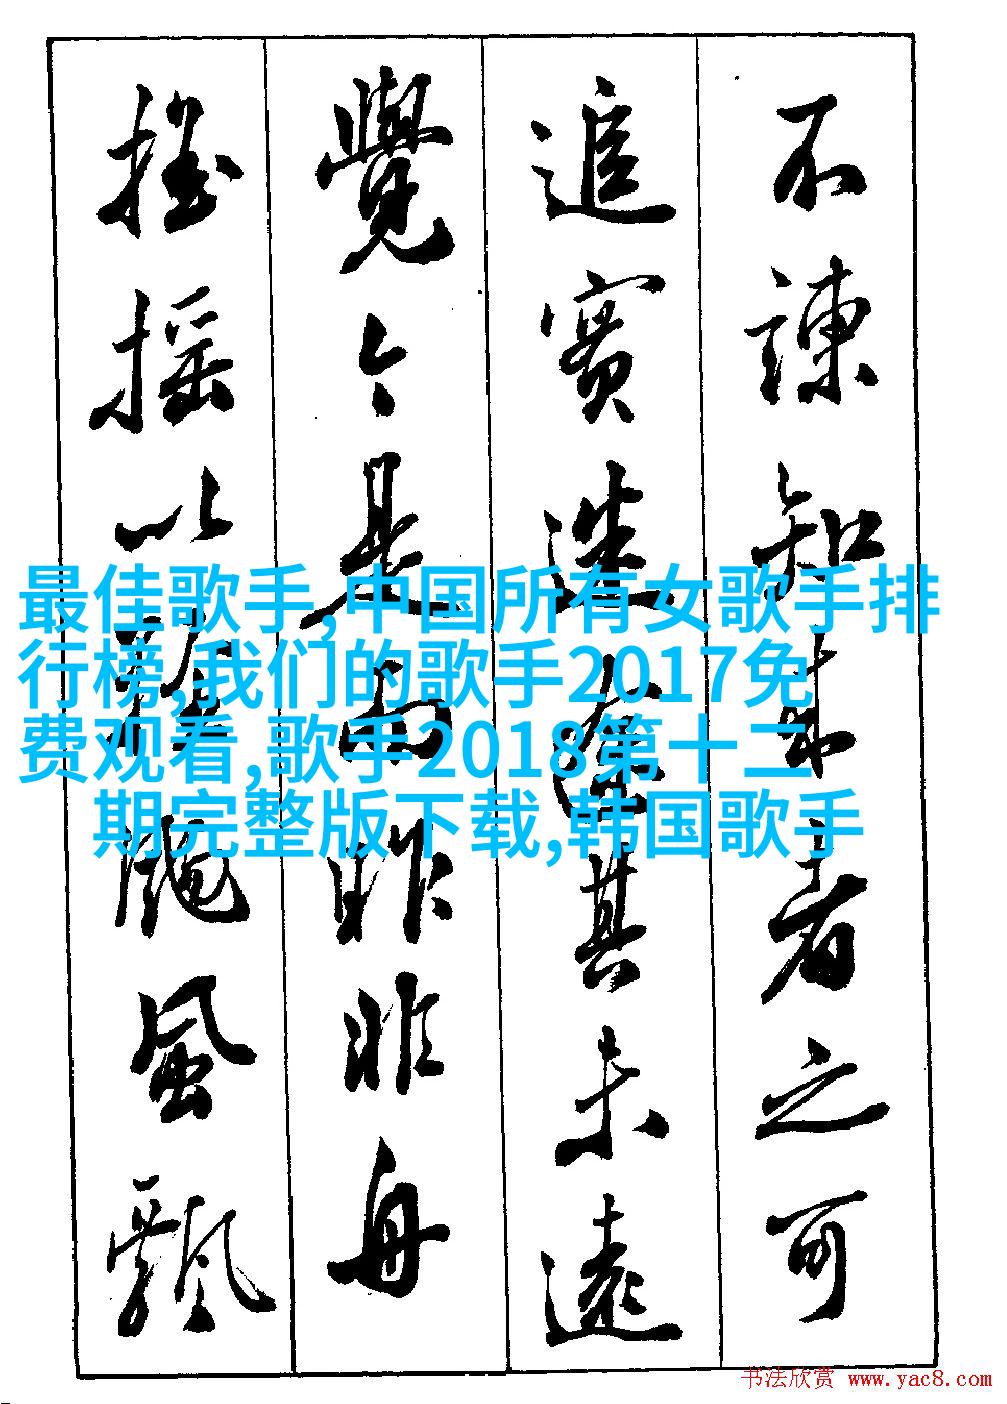 不諫知来者之可
追實迷途其未遠
覺今是而昨非舟
摇摇以輕颺風飄
最佳歌手,中国所有女歌手排
行榜,我们的歌手2017免
费观看,歌手2018第十二
期完整版下载,韩国歌手
书法欣赏 www.yac8.com